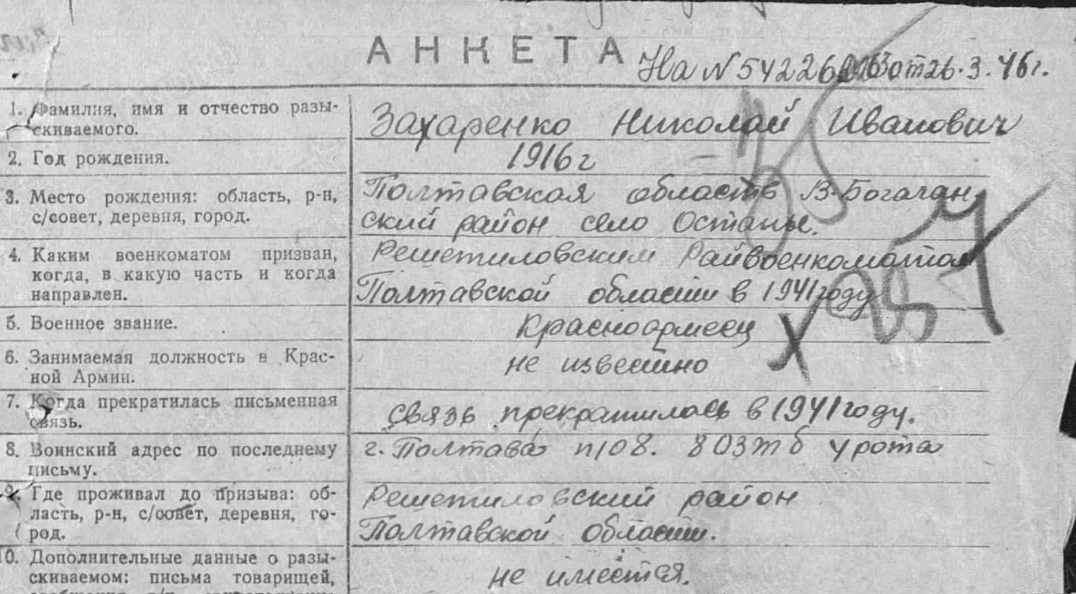 АНКЕТА
На N 54226 от 26.3.46 г.
1. Фамилия, имя и отчество разы-
скиваемого.
Захаренко Николай Иванович
2. Год рождения.
1916 г
3. Место рождения: область, р-н,
с/совет, деревня, город.
Полтавская область В-Богачан
ский район село Остапье.
4. Каким военкоматом призван,
когда, в какую часть и когда
направлен.
Решетиловским Райвоенкоматом
Полтавской области в 1941 году
5. Военное звание.
Красноармеец
6. Занимаемая должность в Крас-
ной Армии.
не известно
7. Когда прекратилась письменная
связь.
связь прекратилась в 1941 году.
8. Воинский адрес по последнему
письму.
г. Полтава п/о 8. 803 т б у рота
9. Где проживал до призыва: об-
ласть, р-н, с/совет, деревня, го-
род.
Решетиловский район
Полтавской области.
10. Дополнительные данные о разы-
скиваемом: письма товарищей,
не имеется.